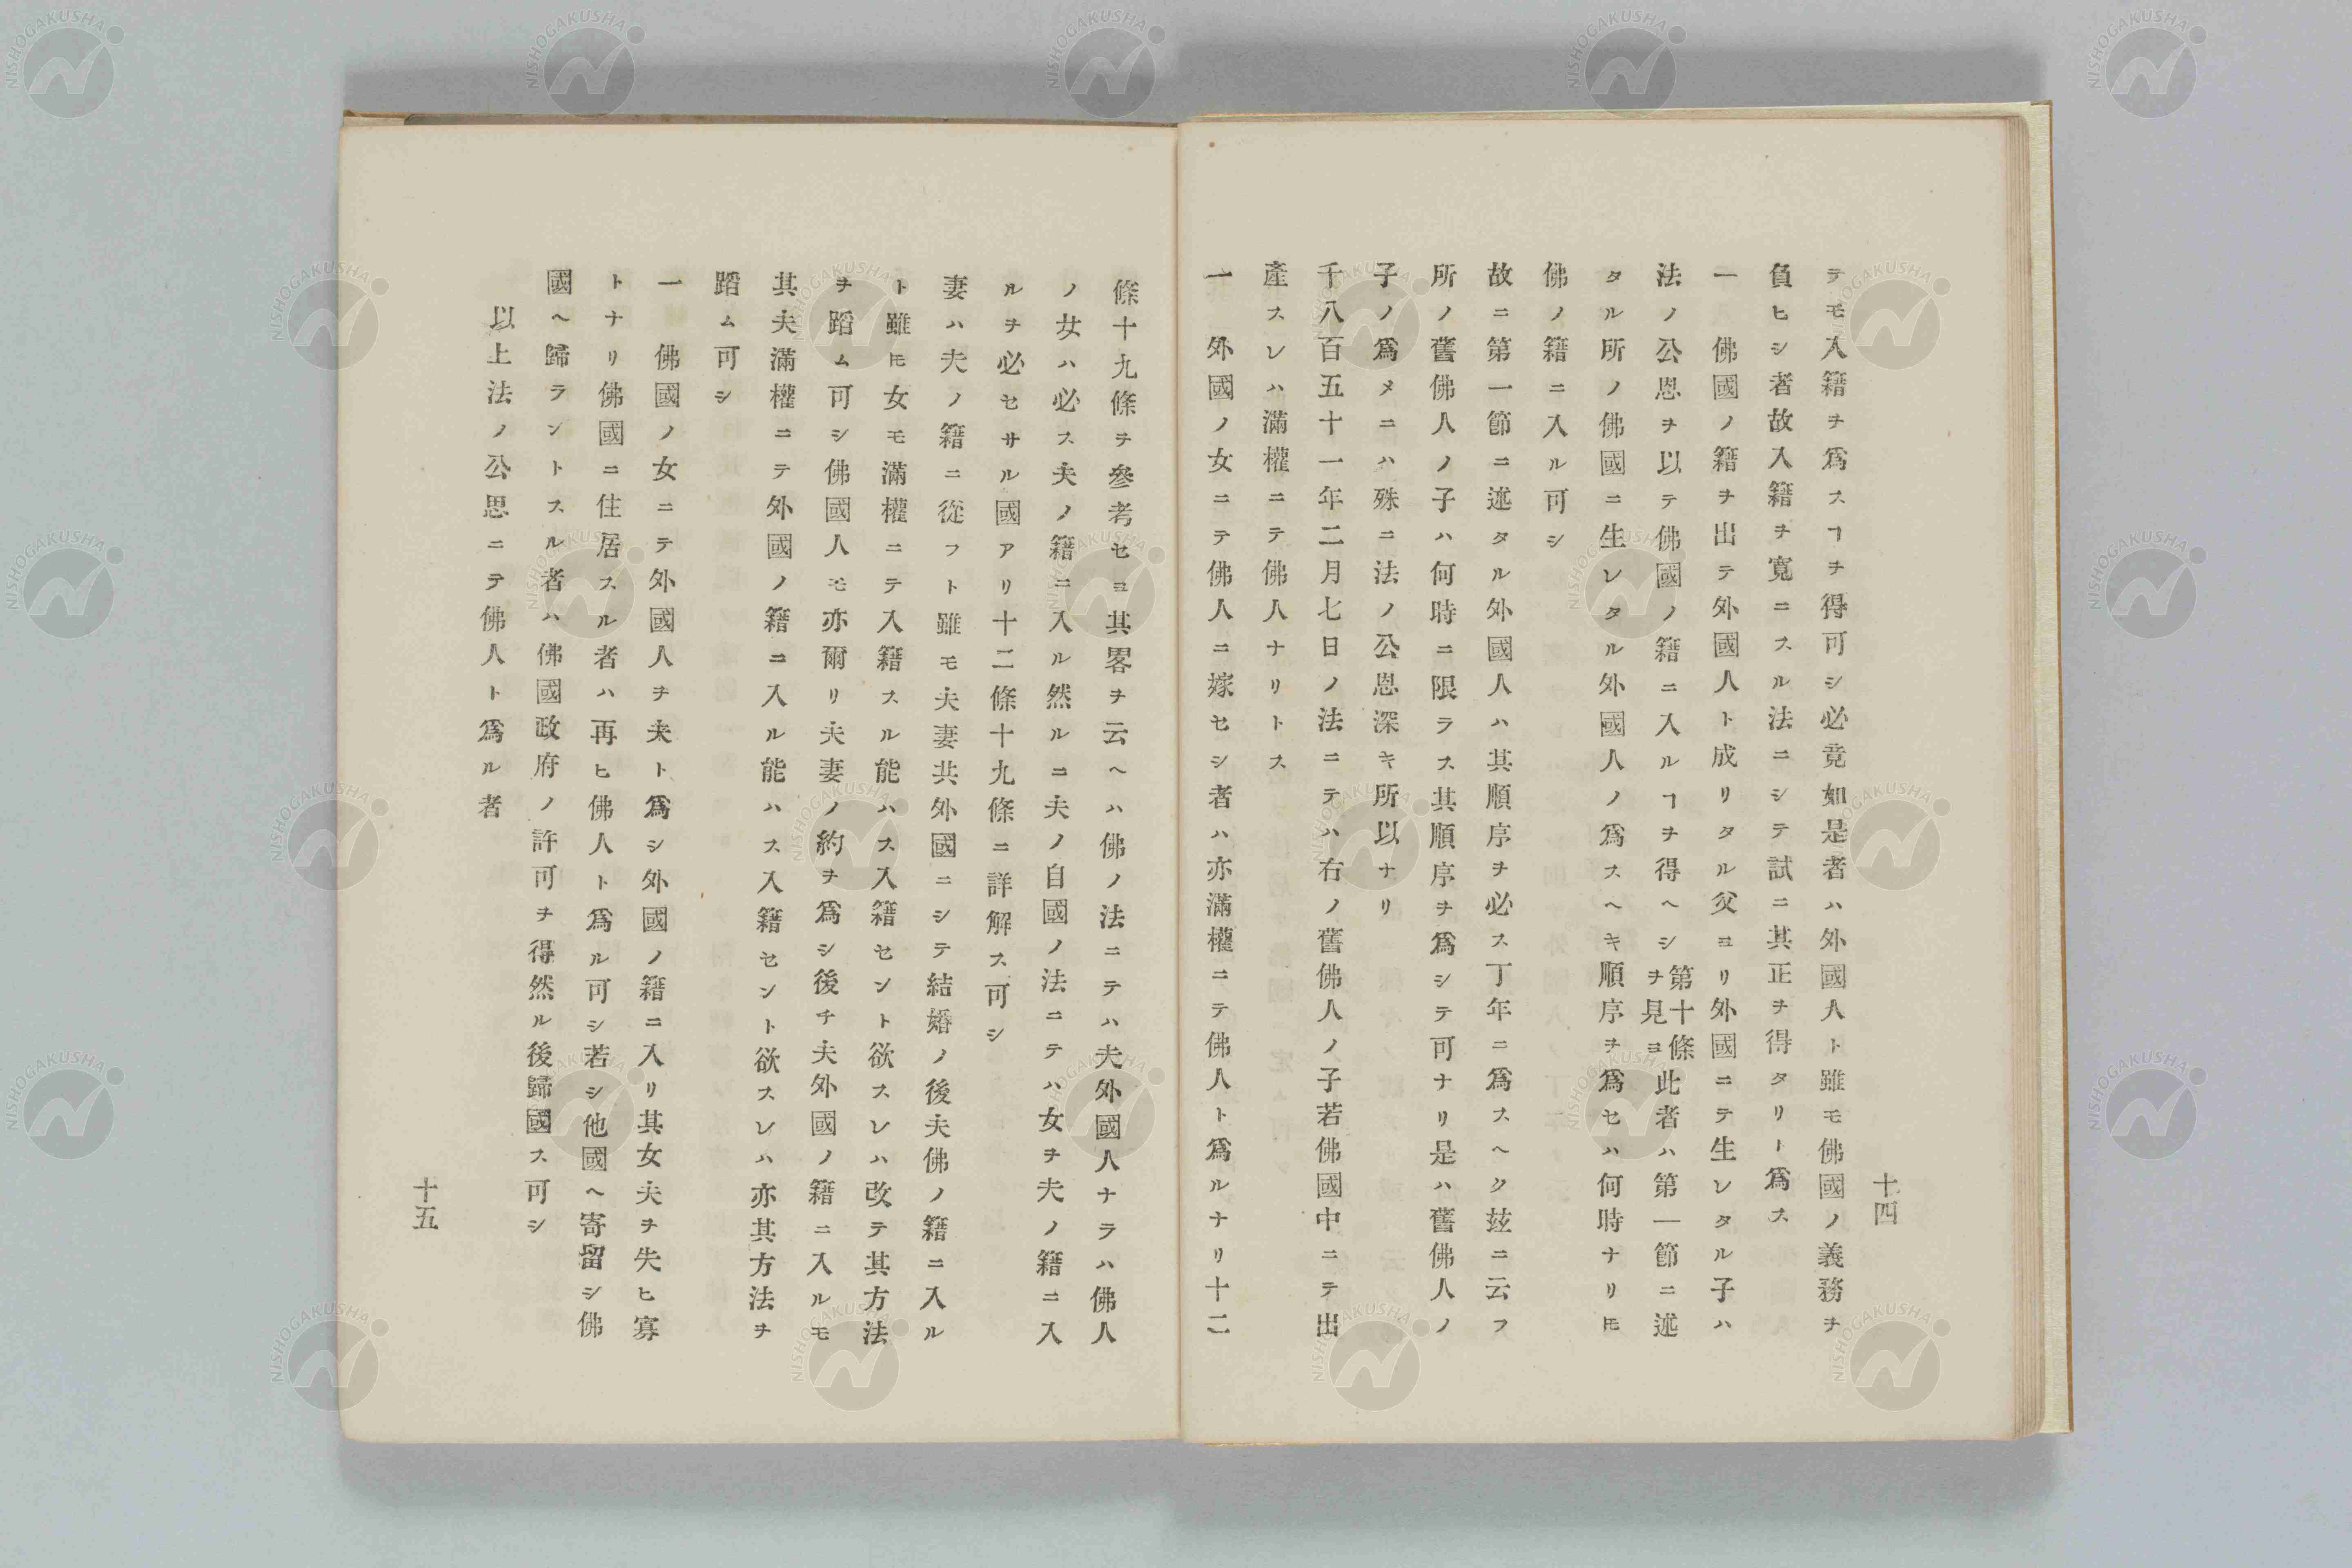 十四
テモ入籍ヲ爲スヿヲ得可シ必竟如是者ハ外國人ト雖モ佛國ノ義務ヲ
負ヒシ者故入籍ヲ寬ニスル法ニシテ試ニ其正ヲ得タリト爲ス
一 佛國ノ籍ヲ出テ外國人ト成リタル父ヨリ外國ニテ生レタル子ハ
法ノ公恩ヲ以テ佛國ノ籍ニ入ルヿヲ得ヘシ第十條ヲ見ヨ此者ハ第一節ニ述
タル所ノ佛國ニ生レタル外國人ノ爲スヘキ順序ヲ爲セハ何時ナリㇳモ
佛ノ籍ニ入ル可シ
故ニ第一節ニ述タル外國人ハ其順序ヲ必ス丁年ニ爲スヘク玆ニ云フ
所ノ舊佛人ノ子ハ何時ニ限ラス其順序ヲ爲シテ可ナリ是ハ舊佛人ノ
子ノ爲メニハ殊ニ法ノ公恩深キ所以ナリ
千八百五十一年二月七日ノ法ニテハ右ノ舊佛人ノ子若佛國中ニテ出
產スレハ滿權ニテ佛人ナリトス
一 外國ノ女ニテ佛人ニ嫁セシ者ハ亦滿權ニテ佛人ト爲ルナリ十二
條十九條ヲ參考セヨ其畧ヲ云ヘハ佛ノ法ニテハ夫外國人ナラハ佛人
ノ女ハ必ス夫ノ籍ニ入ル然ルニ夫ノ自國ノ法ニテハ女ヲ夫ノ籍ニ入
ルヲ必セサル國アリ十二條十九條ニ詳解ス可シ
妻ハ夫ノ籍ニ從フト雖モ夫妻共外國ニシテ結婚ノ後夫佛ノ籍ニ入ル
ト雖ㇳモ女モ滿權ニテ入籍スル能ハス入籍セント欲スレハ改テ其方法
ヲ蹈ム可シ佛國人モ亦爾リ夫妻ノ約ヲ爲シ後チ夫外國ノ籍ニ入ルモ
其夫滿權ニテ外國ノ籍ニ入ル能ハス入籍セント欲スレハ亦其方法ヲ
蹈ム可シ
一 佛國ノ女ニテ外國人ヲ夫ト爲シ外國ノ籍ニ入リ其女夫ヲ失ヒ寡
トナリ佛國ニ住居スル者ハ再ヒ佛人ト爲ル可シ若シ他國ヘ寄留シ佛
國ヘ歸ラントスル者ハ佛國政府ノ許可ヲ得然ル後歸國ス可シ
以上法ノ公思ニテ佛人ト爲ル者
十五